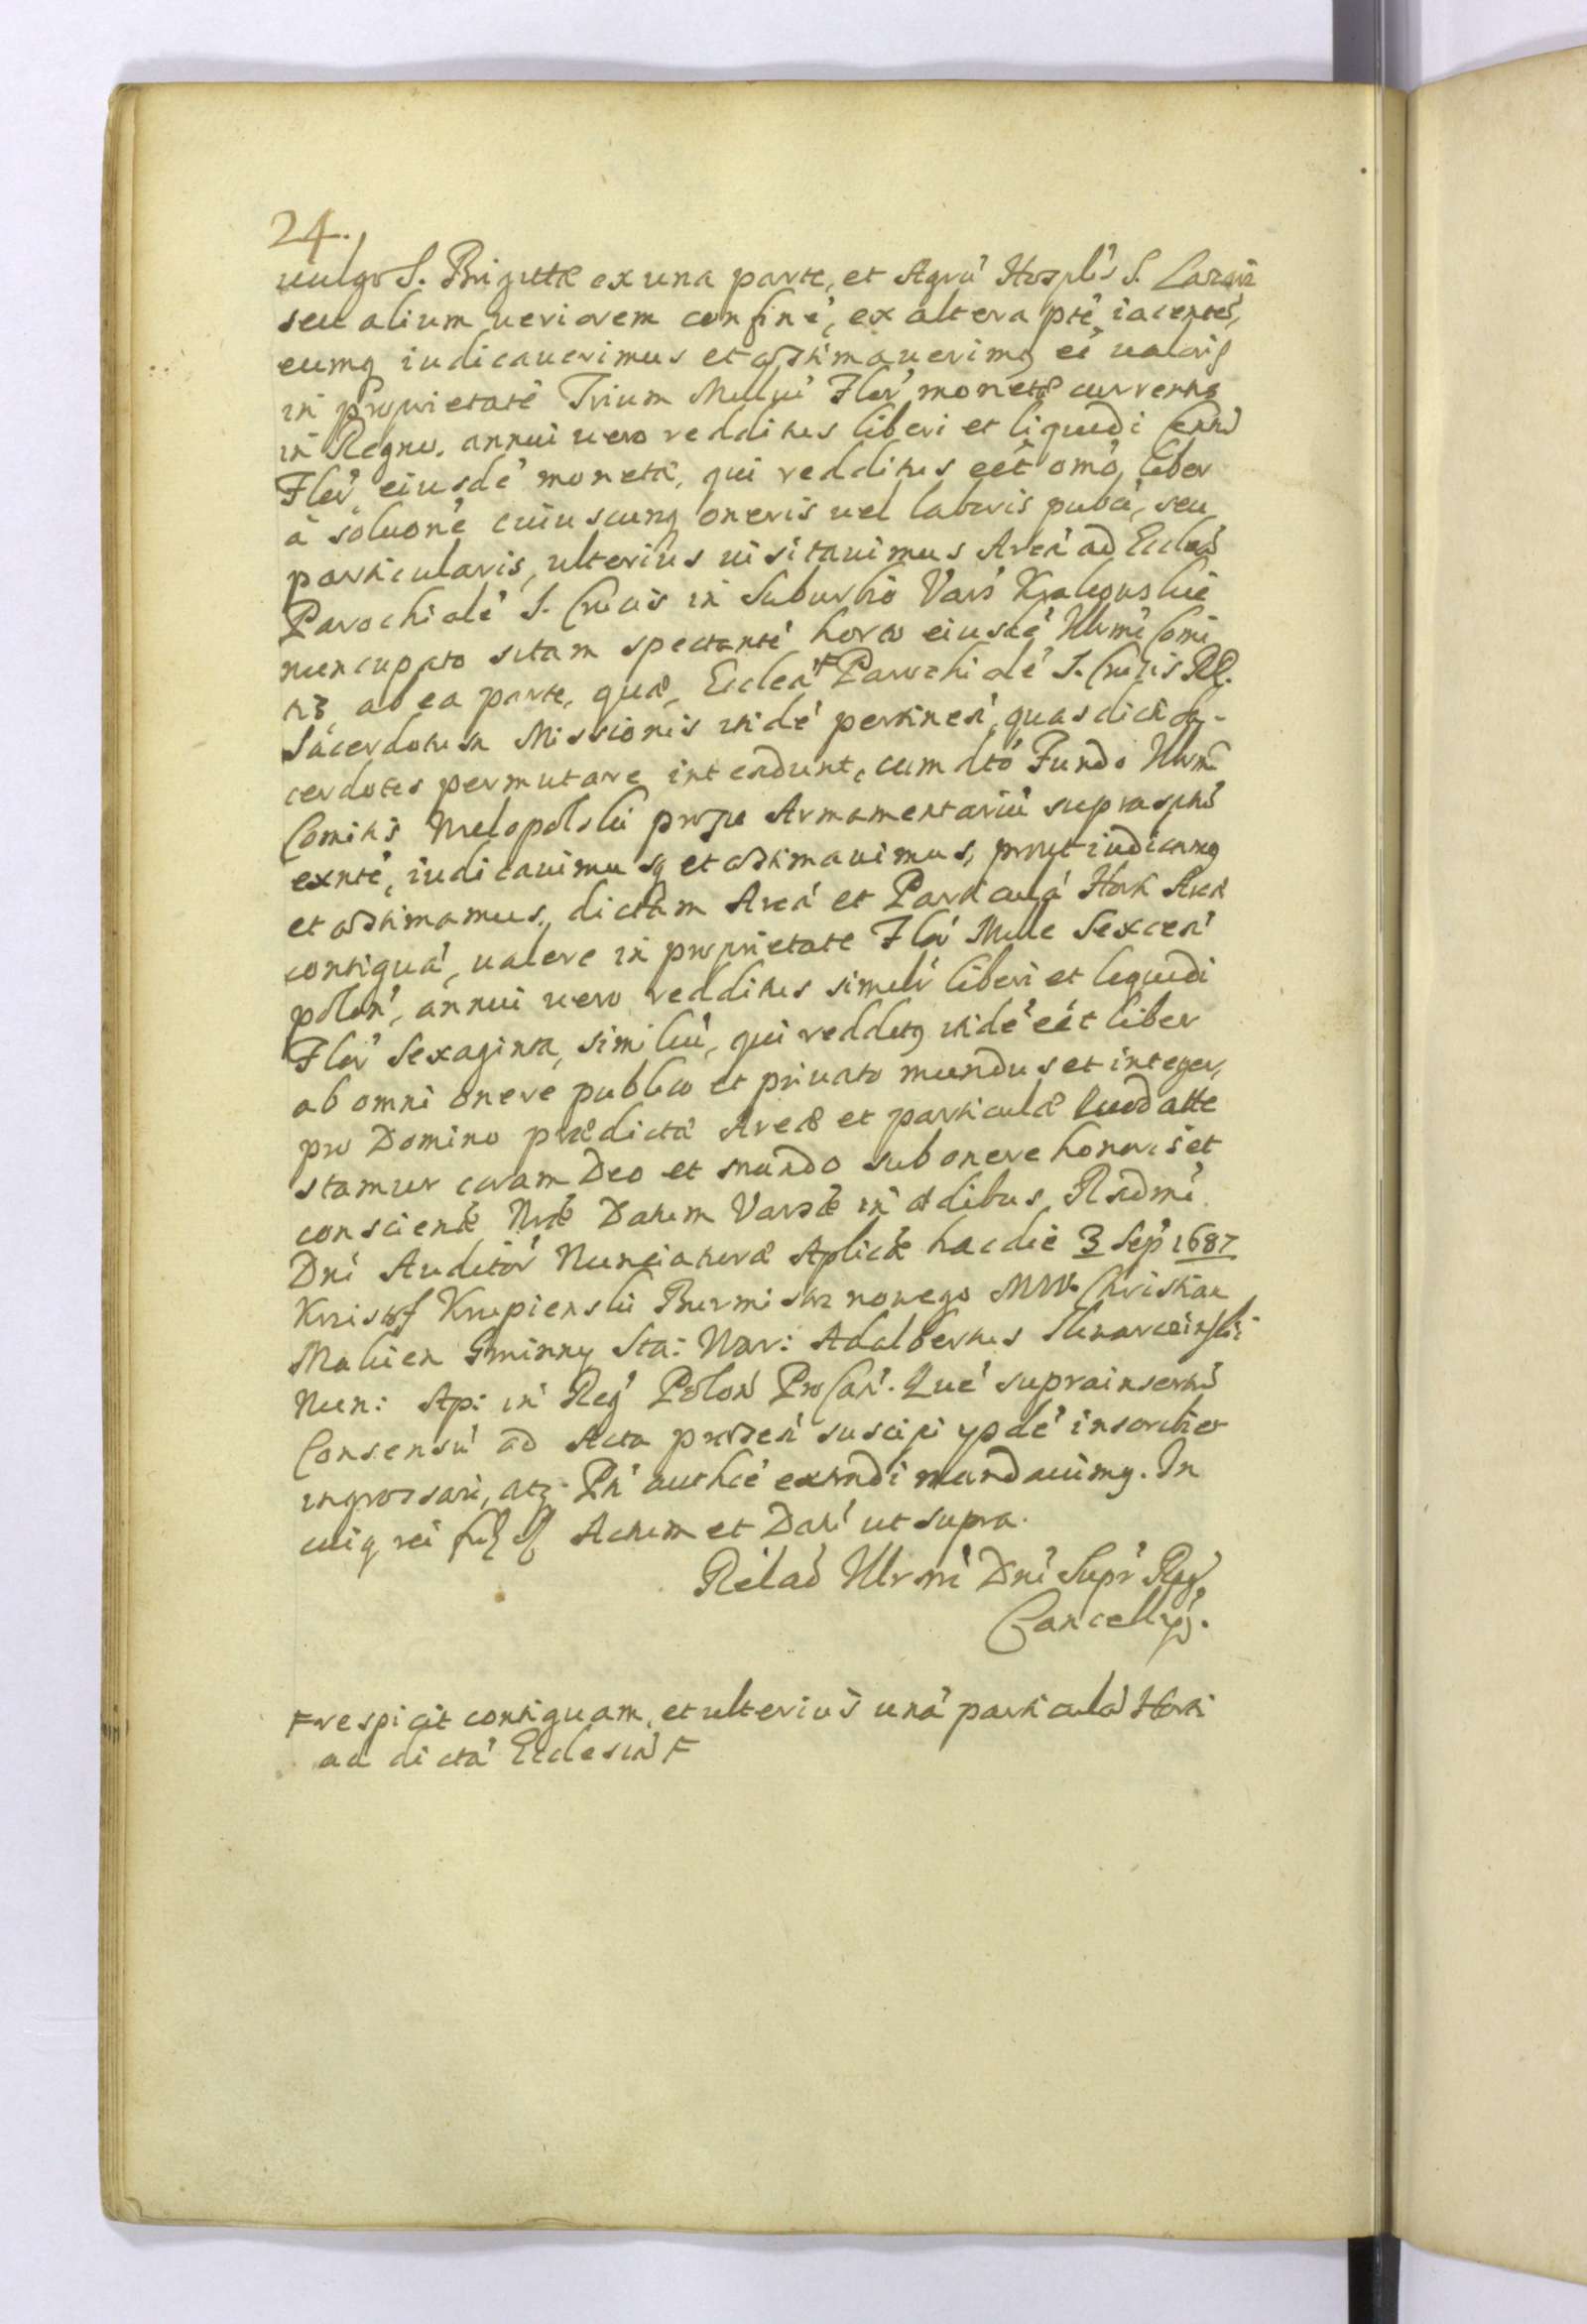 24.
uulgo S. Brigittæ ex una parte, et Agrũ Hosplis S. Lazari
seu alium ueriorem confinẽ, ex altera pte iacentẽ,
eumq iudicauerimus et æstimauerimq eẽ ualoris
in proprietate Trium Milliũ Flor monetæ currentis
in Regno, annui uero redditus liberi et liquidi Centũ
Flor eiusdẽ monetæ, qui redditus eẽt omõ liber
à soluone cuiuscunq oneris uel laboris pubci, seu
particularis, ulterius uisitauimus Areã ad Eccleã
Parochialẽ S. Crucis in Suburbio Vars Krakowskie
nuncupato sitam spectantẽ horto eiusdẽ Illrmi Comi
tis, ab ea parte, quæ, Eccleã F Parochialẽ S. Crucis RR.
Sacerdotum Missionis itidẽ pertineñ, quas dicti Sa-
cerdotes permutare intendunt, cum dto Fundo Illrmi
Comitis Wielopolski prope Armamentariũ suprasptũ
exnte, iudicauimusq et æstimauimus, prout iudicamq
et æstimamus, dictam Areã et Particulã Horti Areæ
contiguã, ualere in proprietate Flor Mille Sexceñ
poloñ, annui uero redditus similr liberi et liquidi
Flor Sexaginta, similiũ, qui redditq itidẽ eẽt liber
ab omni onere publico et priuato mundus et integer,
pro Domino prædictæ Areæ et particulæ Quod atte
stamur coram Deo et mundo sub onere honoris et
conscientiæ Nræ Datum Varsæ in ædibus Rndmi
Dni Auditor Nunciaturæ Aplicæ hac die 3 Sep 1687
Krzisztof Krupienski Burmistrz nowego MW. Christian
Mahien Gminny Sta: War: Adalbertus Skwarcinski
Nun: Ap: in Reg Polon ProCan. Quẽ suprainsertũ
Consensũ ad Acta præseñ suscipi ypdẽ inscribi et
ingrossari, atq Pñ authce extradi mandauimq. In
cuiq rei Actum et Daŧ ut supra.
Relaõ Illrmi Dni Supr Reg
Cancellrij.
F respicit contiguam, et ulterius unã particulã Horti
ad dictã Ecclesiã F